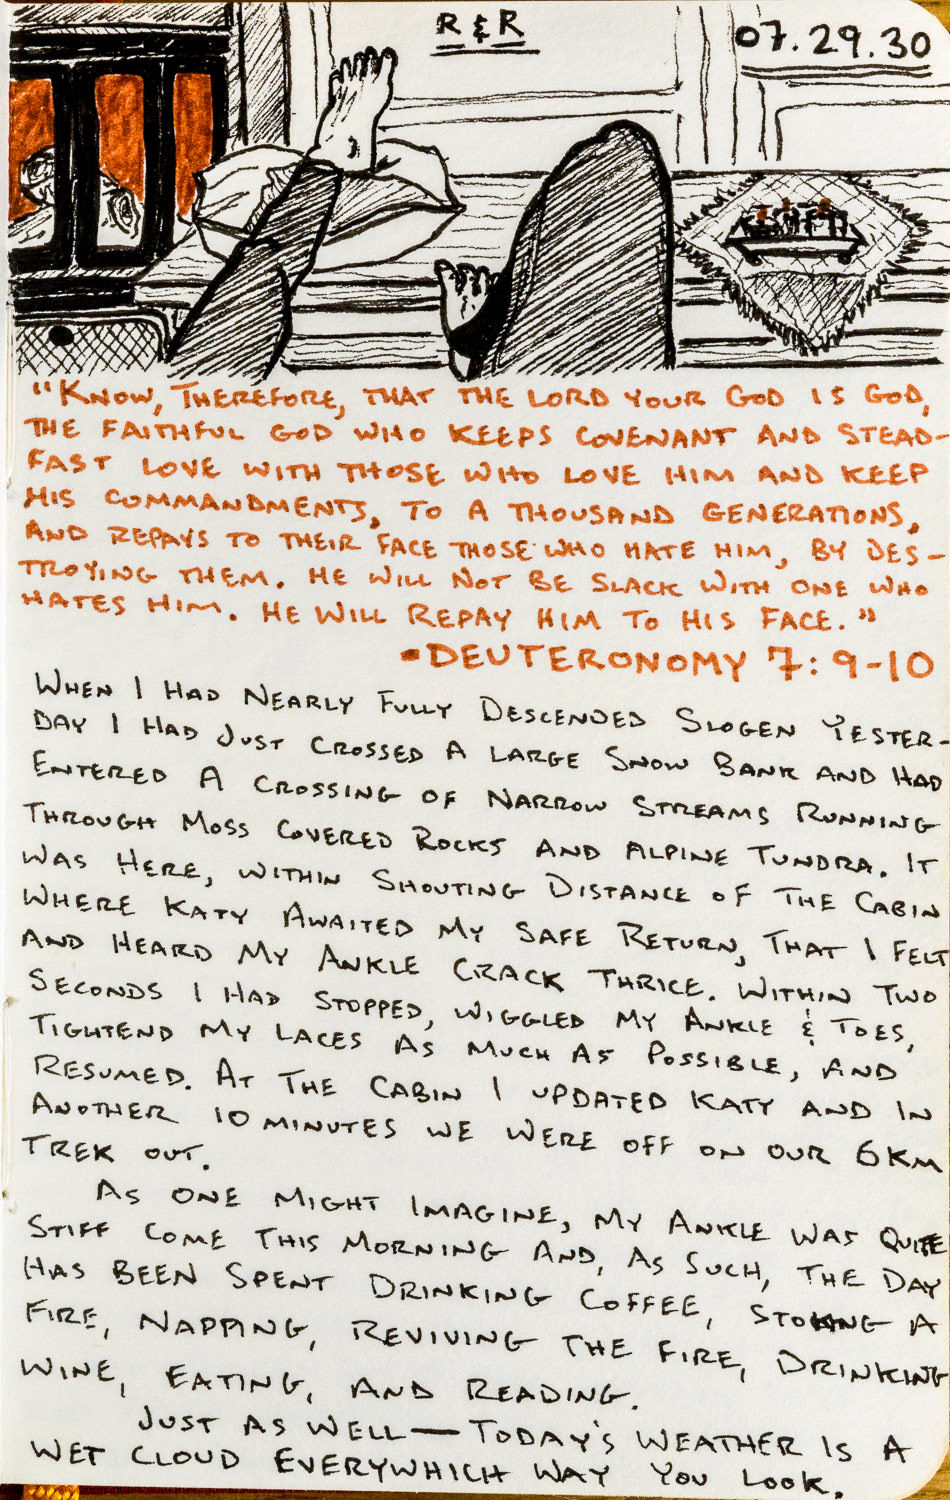 R & R
07.29.30
"KNOW, THEREFORE, THAT THE LORD YOUR GOD IS GOD,
THE FAITHFUL GOD WHO KEEPS COVENANT AND STEAD-
FAST LOVE WITH THOSE WHO LOVE HIM AND KEEP
HIS COMMANDMENTS, TO A THOUSAND GENERATIONS,
AND REPAYS TO THEIR FACE THOSE WHO HATE HIM, BY DES-
TROYING THEM. HE WILL NOT BE SLACK WITH ONE WHO
HATES HIM. HE WILL REPAY HIM TO HIS FACE."
•DEUTERONOMY 7:9-10
WHEN I HAD NEARLY FULLY DESCENDED SLOGEN YESTER-
DAY I HAD JUST CROSSED A LARGE SNOW BANK AND HAD
ENTERED A CROSSING OF NARROW STREAMS RUNNING
THROUGH MOSS COVERED ROCKS AND ALPINE TUNDRA. IT
WAS HERE, WITHIN SHOUTING DISTANCE OF THE CABIN
WHERE KATY AWAITED MY SAFE RETURN, THAT I FELT
AND HEARD MY ANKLE CRACK THRICE. WITHIN TWO
SECONDS I HAD STOPPED, WIGGLED MY ANKLE & TOES,
TIGHTEND MY LACES AS MUCH AS POSSIBLE, AND
RESUMED. AT THE CABIN I UPDATED KATY AND IN
ANOTHER 10 MINUTES WE WERE OFF ON OUR 6KM
TREK OUT.
AS ONE MIGHT IMAGINE, MY ANKLE WAS QUITE
STIFF COME THIS MORNING AND, AS SUCH, THE DAY
HAS BEEN SPENT DRINKING COFFEE, STOKING A
FIRE, NAPPING, REVIVING THE FIRE, DRINKING
WINE, EATING, AND READING.
JUST AS WELL—TODAY'S WEATHER IS A
WET CLOUD EVERYWHICH WAY YOU LOOK.